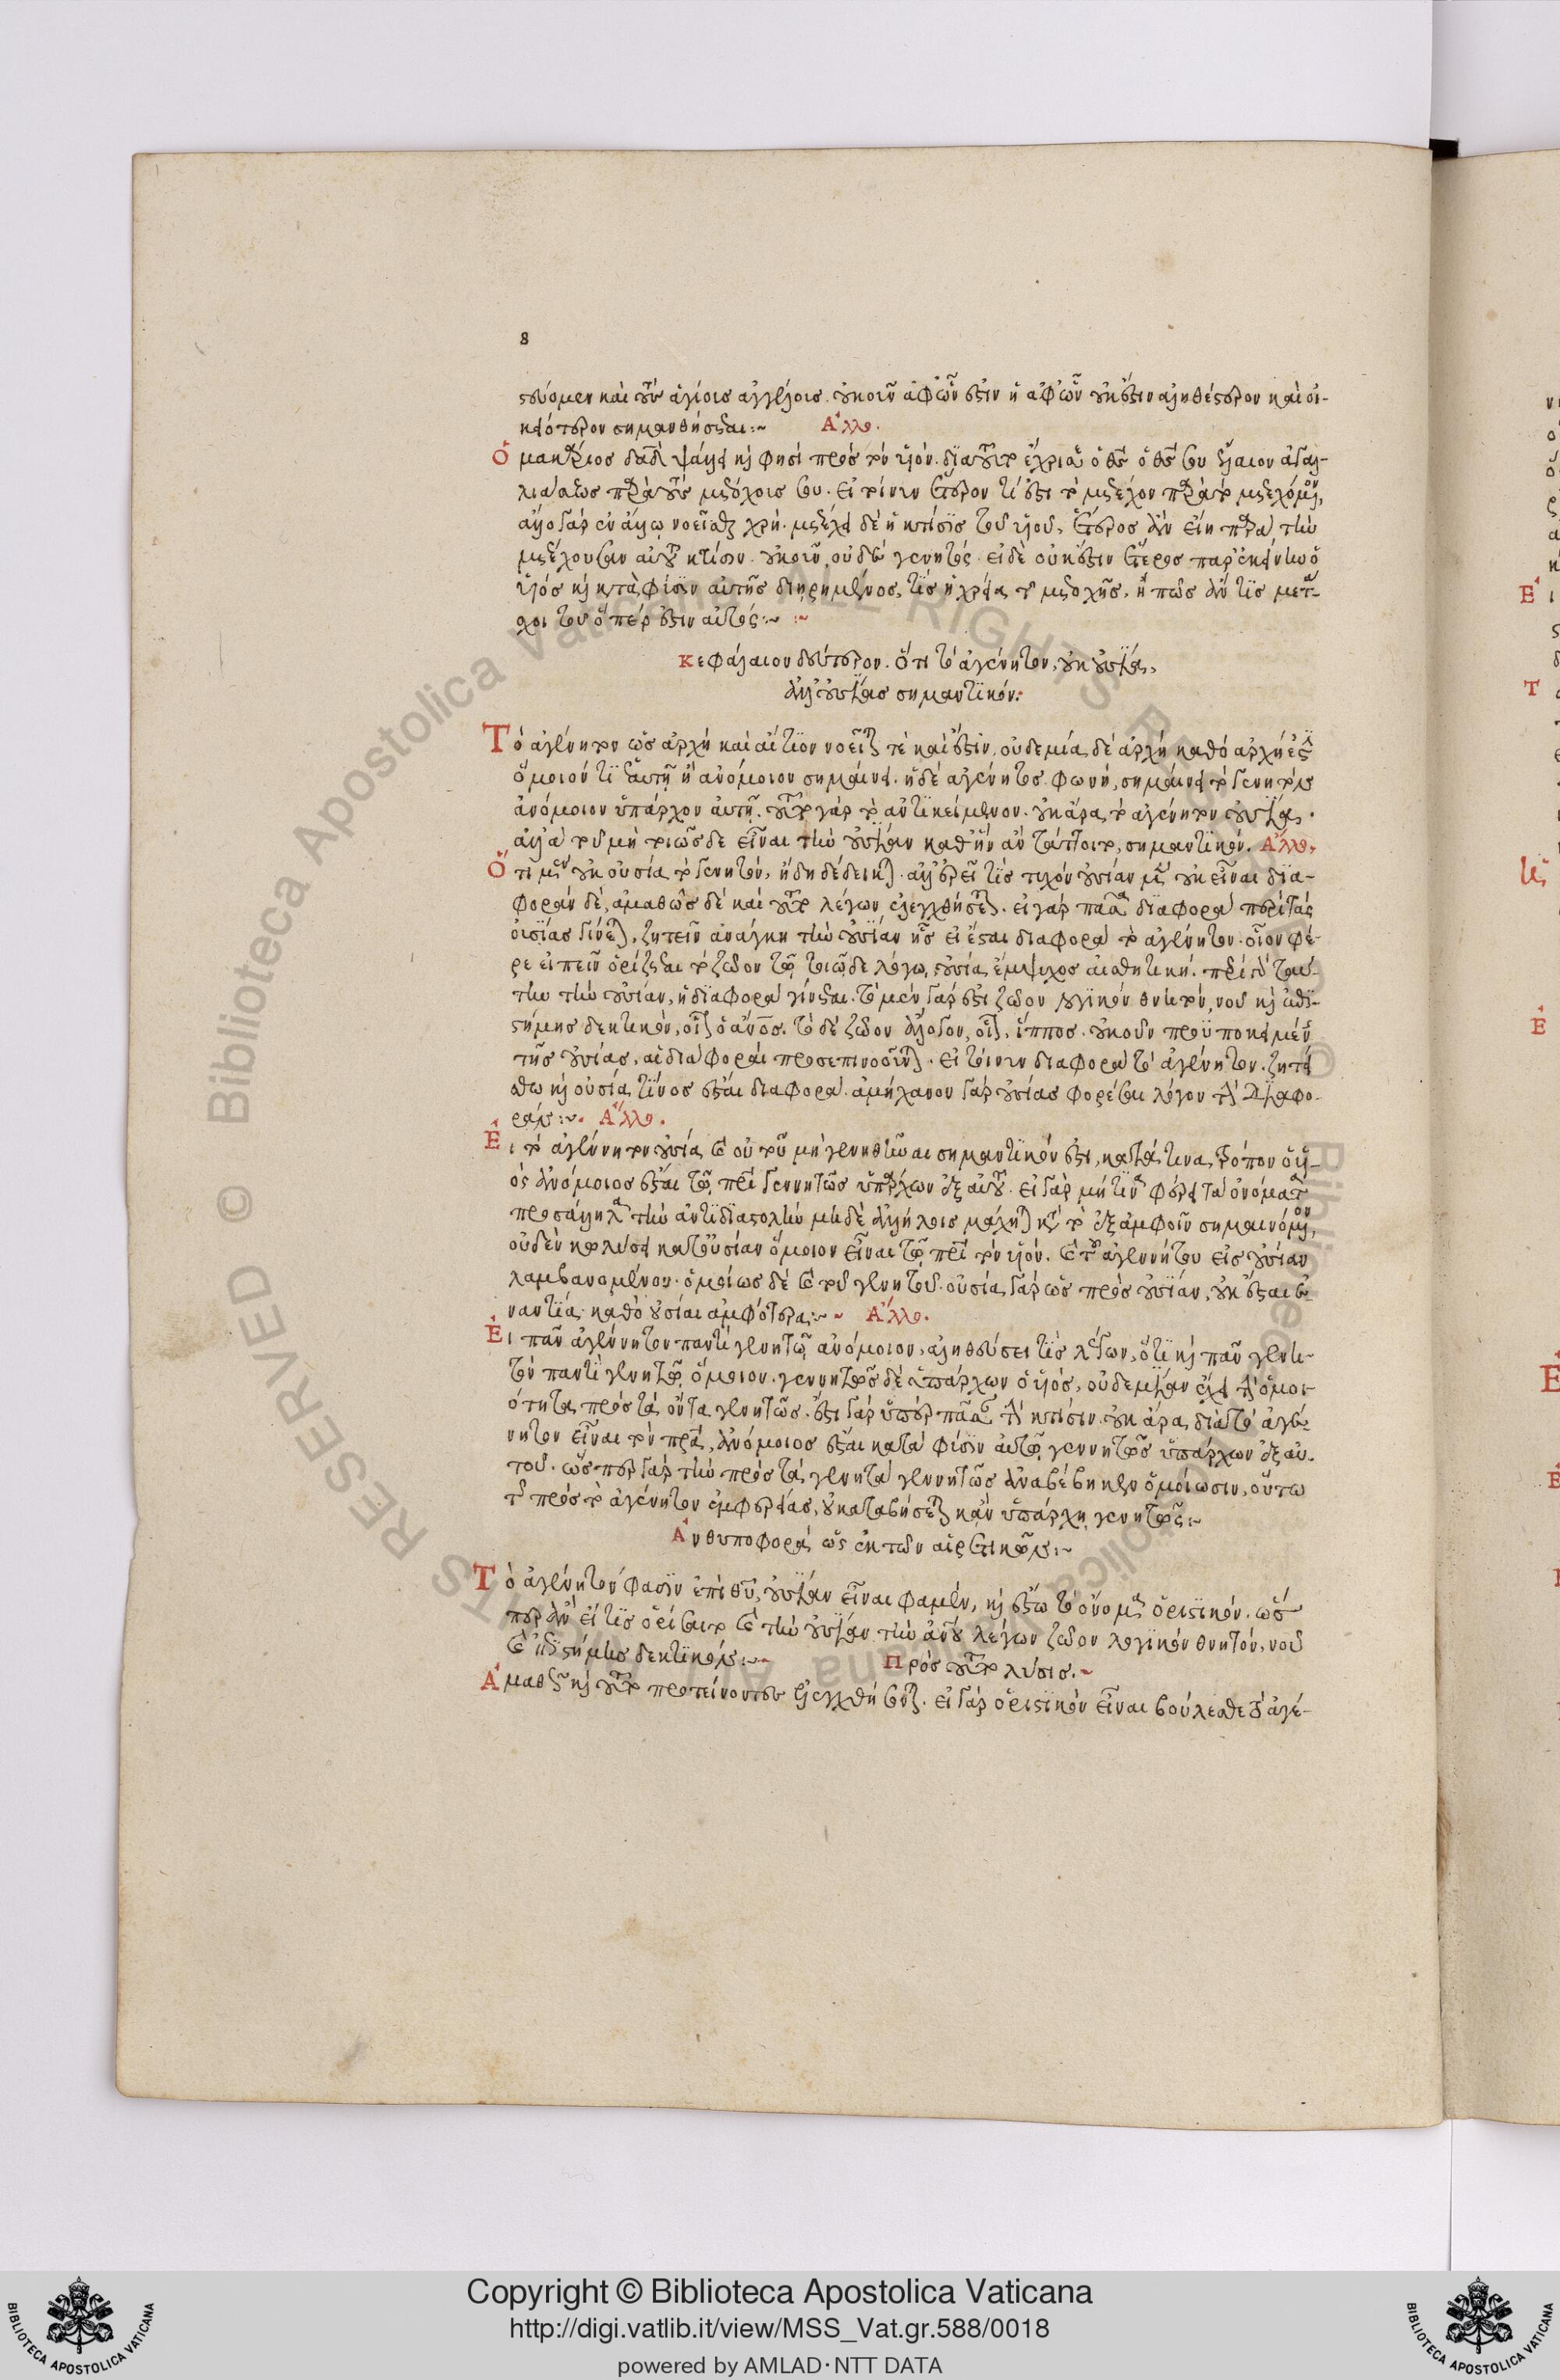 8
στεύομεν καὶ τοὺς ἁγίοις ἀγγέλοις. οὐκοῦν ἀφ' ὧν ἐστιν ἢ ἀφ' ὧν οὐκ ἔστιν ἀληθέστερον καὶ οἰ-
κειότερον σημανθήσεται :~ Ἄλλο.
Ὁ μακάριος δαδ ψάλλει καὶ φησὶ πρὸς τὸν υἱόν. διὰ τοῦτο ἔχρισέ σε ὁ θσ ὁ θσ σου ἔλαιον ἀγαλ-
λιάσεως παρὰ τοὺς μετόχους σου. εἰ τοίνυν ἕτερον τί ἐστι τὸ μετέχον παρὰ τὸ μετεχόμενον,
ἄλλο γὰρ ἐν ἄλλῳ νοεῖσθαι χρή. μετέχει δὲ ἡ κτίσις τοῦ υἱοῦ, ἕτερος ἂν εἴη παρὰ τὴν
μετέχουσαν αὐτοῦ κτίσιν. οὐκοῦν οὐδὲ γενητός. εἰ δὲ οὐκ ἔστιν ἕτερος παρ' ἐκείνην ὁ
υἱὸς καὶ κατὰ φύσιν αὐτῆς διῃρημένος, τίς ἡ χρεία τῆς μετοχῆς, ἢ πῶς ἄν τις μετά-
σχοι τοῦ ὅπερ ἐστιν αὐτός :~
κεφάλαιον δεύτερον. ὅτι τὸ ἀγένητον, οὐκ οὐσία,
ἀλλ' οὐσίας σημαντικόν :
Τὸ ἀγένητον ὡς ἀρχὴ καὶ αἴτιον νοεῖται τὲ καὶ ἐστὶν, οὐδεμία δὲ ἀρχὴ καθὸ ἀρχή ἐστιν
ὅμοιόν τι ἑαυτῇ ἢ ἀνόμοιον σημαίνει. ἡ δὲ ἀγένητος φωνή, σημαίνει τὸ γενητὸν
ἀνόμοιον ὑπάρχον αὐτῇ. τοῦτο γὰρ τὸ ἀντικείμενον. οὐκ ἄρα τὸ ἀγένητον οὐσία.
ἀλλὰ τοῦ μὴ τοιῶσδε εἶναι τὴν οὐσίαν καθ' ἣν ἂν τάττοιτο, σημαντικόν. Ἄλλο,
Ὅτι μὲν οὐκ οὐσία τὸ γενητόν, ἤδη δέδεικται. ἀλλ' ἐρεῖ τις τυχὸν οὐσίαν μὲν οὐκ εἶναι δια-
φορὰν δέ, ἀμαθῶς δὲ καὶ τοῦτο λέγων ἐλεγχθήσεται. εἰ γὰρ πᾶσα διαφορὰ περὶ τὰς
οὐσίας γίνεται, ζητεῖν ἀνάγκη τὴν οὐσίαν ἧς εἰ ἔσται διαφορὰ τὸ ἀγένητον. οἷον φέ-
ρε εἰπεῖν ὁρίζεται τὸ ζῶον τῷ τοιῷδε λόγῳ, οὐσία ἔμψυχος αἰσθητική. περὶ δὲ ταύ-
την τὴν οὐσίαν, ἡ διαφορὰ γίνεται. τὸ μὲν γάρ ἐστι ζῶον λογικὸν θνητὸν, νοῦ καὶ ἐπι-
στήμης δεκτικὸν, οἷον ὁ ἄνοσ. τὸ δὲ ζῶον ἄλογον, οἷον, ἵππος. οὐκοῦν προϋποκειμένης
τῆς οὐσίας, αἱ διαφοραὶ προσεπινοοῦνται. εἰ τοίνυν διαφορὰ τὸ ἀγένητον. ζητεί-
σθω καὶ οὐσία τίνος ἔσται διαφορά. ἀμήχανον γὰρ οὐσίας φορέσαι λόγον τὴν διαφο-
ράν :~ Ἄλλο.
Εἰ τὸ ἀγέννητον οὐσία καὶ οὐ τοῦ μὴ γεννηθῆναι σημαντικόν ἐστι, κατὰ τίνα τρόπον ὁ υἱ-
ὸς ἀνόμοιος ἔσται τῷ πρὶ γεννητῶς ὑπάρχων ἐξ αὐτοῦ. εἰ γὰρ μή τινα φέρει τὰ ὀνόματα
πρὸς ἄλληλα τὴν ἀντιδιαστολὴν μὴ δὲ ἀλλήλοις μάχηται κατὰ τὸ ἐξ ἀμφοῖν σημαινόμενον,
οὐδὲν κωλύσει κατ' οὐσίαν ὅμοιον εἶναι τῷ πρὶ τὸν υἱόν. καὶ τοῦ ἀγεννήτου εἰς οὐσίαν
λαμβανομένου. ὁμοίως δὲ καὶ τοῦ γενητοῦ. οὐσία γὰρ ὡς πρὸς οὐσίαν, οὐκ ἔσται ἐ-
ναντία καθὸ οὐσίαι ἀμφότερα :~ Ἄλλο.
Εἰ πᾶν ἀγέννητον παντὶ γενητῷ ἀνόμοιον, ἀληθεύσει τις λέγων, ὅτι καὶ πᾶν γενη-
τὸν παντὶ γενητῷ ὅμοιον. γεννητῶς δὲ ὑπάρχων ὁ υἱός, οὐδεμίαν ἔχει τὴν ὁμοι-
ότητα πρὸς τὰ ὄντα γενητῶς. ἔστι γὰρ ὑπὲρ πᾶσαν τὴν κτίσιν. οὐκ ἄρα διὰ τὸ ἀγέν-
νητον εἶναι τὸν πρα, ἀνόμοιος ἔσται κατὰ φύσιν αὐτῷ γεννητῶς ὑπάρχων ἐξ αὐ-
τοῦ. ὥσπερ γὰρ τὴν πρὸς τὰ γενητὰ γεννητῶς ἀναβέβηκεν ὁμοίωσιν, οὕτω
τῆς πρὸς τὸ ἀγένητον ἐμφερείας, οὐ καταβήσεται κἂν ὑπάρχῃ γεννητῶς :~
Ἀνθυποφορὰ ὡς ἐκ τῶν αἱρετικῶν :~
Τὸ ἀγένητόν φασιν ἐπὶ θυ, οὐσίαν εἶναι φαμὲν, καὶ ἔστω τὸ ὄνομα ὁριστικόν. ὥσ-
περ ἂν εἴ τις ὁρίσαιτο καὶ τὴν οὐσίαν τὴν ἀνου λέγων ζῶον λογικὸν θνητόν, νοῦ
καὶ ἐπιστήμης δεκτικόν :~ Πρὸς τοῦτο λύσις.~
Ἀμαθεῖς καὶ τοῦτο προτείνοντες ἐλεγχθήσονται. εἰ γὰρ ὁριστικὸν εἶναι βούλεσθε τὸ ἀγέ-
Copyright © Biblioteca Apostolica Vaticana
http://digi.vatlib.it/view/MSS_Vat.gr.588/0018
powered by AMLAD · NTT DATA